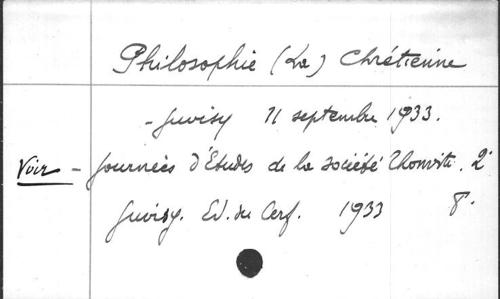 Philosophie (La) Chrétienne
- Juvisy 11 septembre 1933.
Voir - Journées d'Etudes de la société Thomiste. 2e
Juvisy. Ed. du Cerf. 1933 8°.